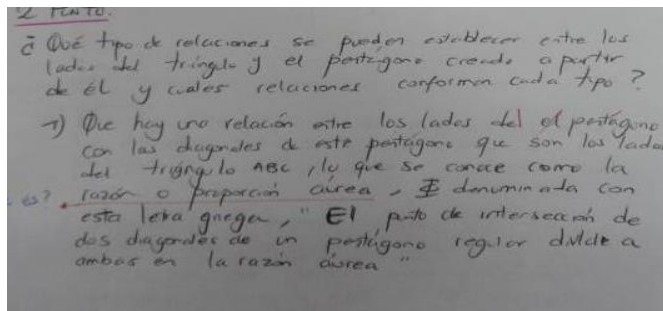 2 PUNTO.
¿ Qué tipo de relaciones se pueden establecer entre los
lados del triángulo y el pentágono creado a partir
de él y cuales relaciones conforman cada tipo ?
→) Que hay una relación entre los lados del el pentágono
con las diagonales de este pentágono que son los lados
del triángulo ABC , lo que se conoce como la
es? razón o proporción áurea , Φ denominada con
esta letra griega , " El punto de intersección de
dos diagonales de un pentágono regular divide a
ambas en la razón áurea "